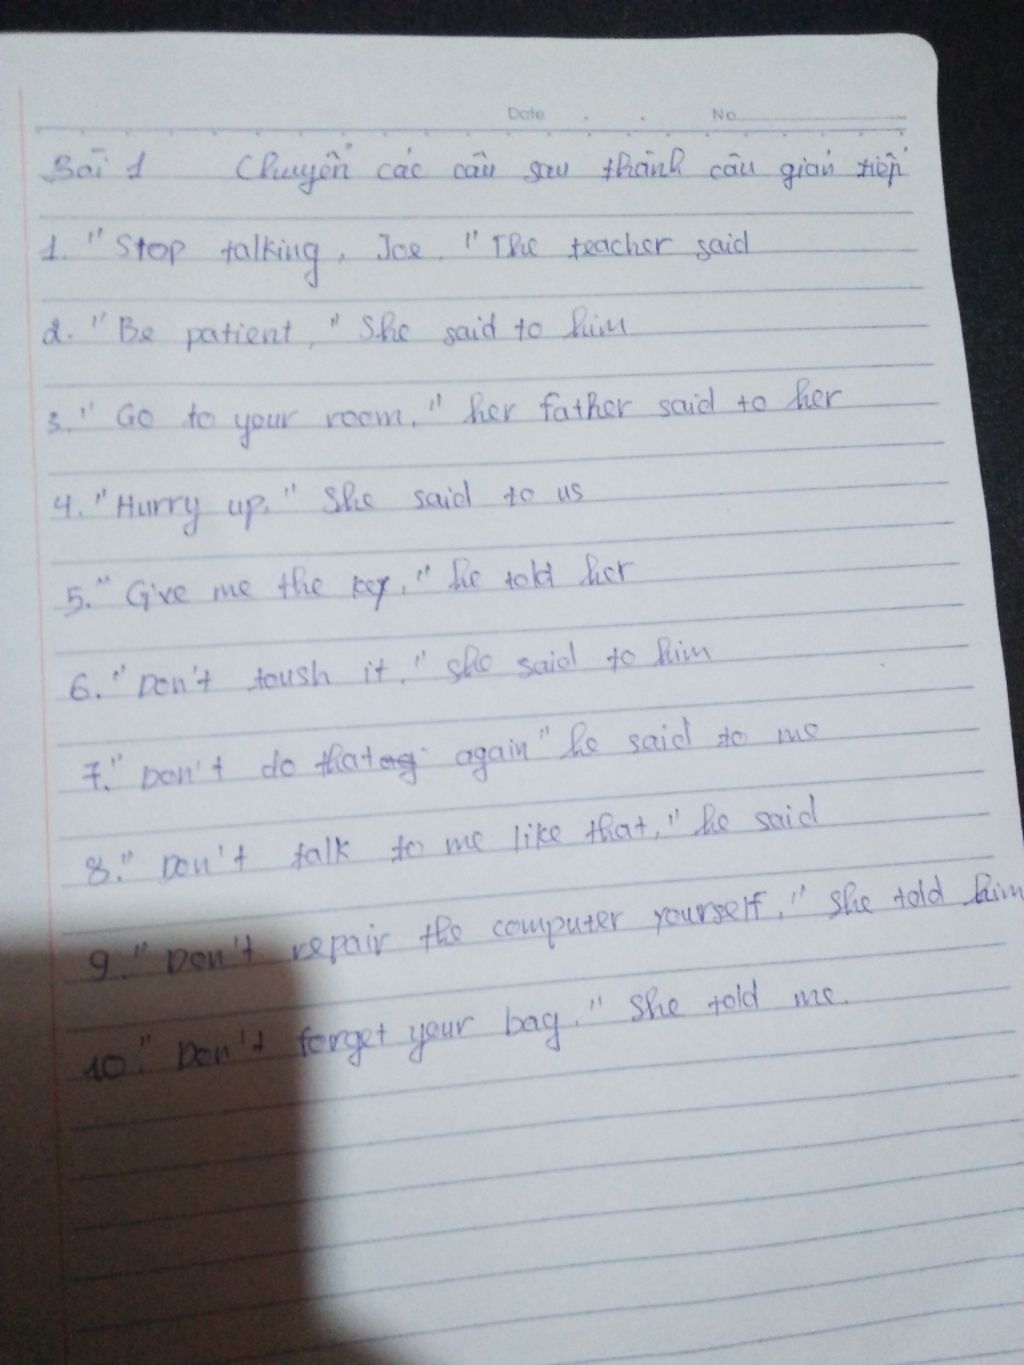 Date . . No
Bài 1 Chuyển các câu sau thành câu gián tiếp
1. "Stop talking, Joe. " The teacher said
2. "Be patient, " She said to him
3. " Go to your room, " her father said to her
4. "Hurry up. " She said to us
5. " Give me the key, " he told her
6. " Don't toush it, " she said to him
7. " Don't do that again" he said to me
8. " Don't talk to me like that, " he said
9. " Don't repair the computer yourself, " she told him
10. " Don't forget your bag. " She told me.